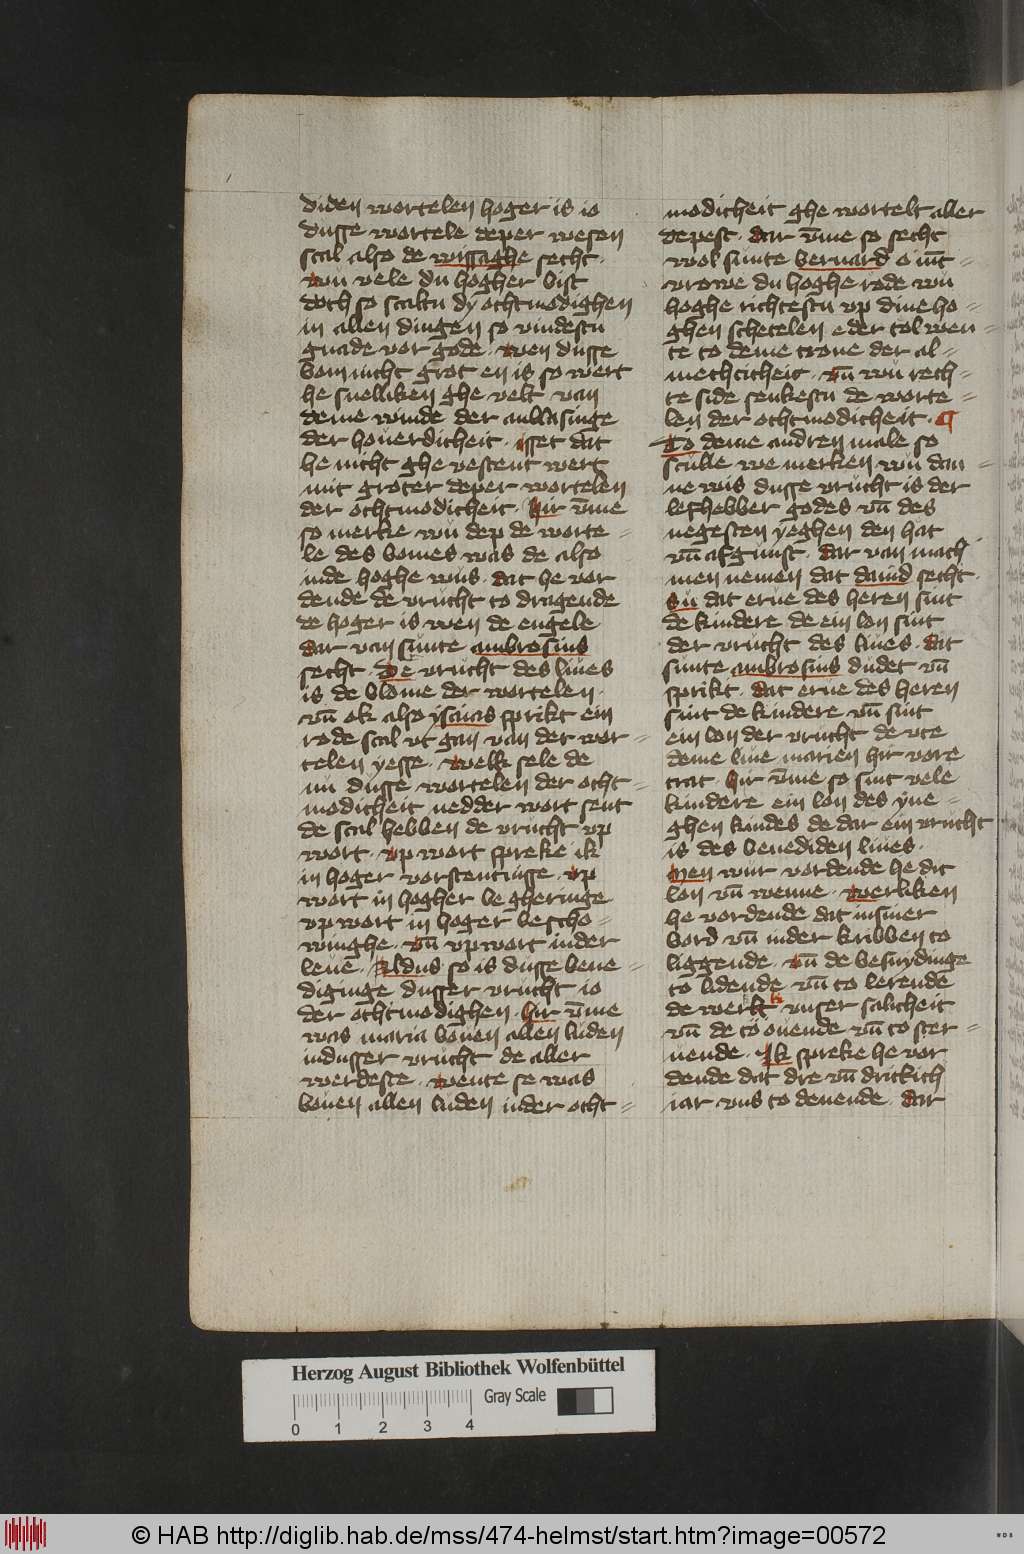 diden wortelen hoger is io
dusse wortele deper wesen
scal also de wissaghe secht ·
wu vele du hogher bist
doch so scaltu dy ochtmodighen
in allen dingen so vindestu
gnade vor gode · wen dusse
bom nicht grot en is so wert
he snelliken ghe velt van
deme winde der anblasinge
der houerdicheit · isset dat
he nicht ghe vestent wert
mit groter deper wortelen
der ochtmodicheit · hir vm̄e
so merke wu dep de worte =
le des bomes was de also
inde hoghe wus · dat he vor
dende de vrucht to dragende
de hoger is wen de engele
dar van sunte ambrosius
secht · De vrucht des liues
is de blome der wortelen ·
vn̄ ok also ysaias sprikt ein
rode scal vt gan van der wor =
telen yesse · welk sele de
nu dusse wortelen der ocht =
modicheit nedder wort sent
de scal hebben de vrucht vp
wort · vp wort spreke ik
in hoger vorstentnisse · vp
wort in hogher be gheringe
vp wort in hoger bescho =
winghe · vn̄ vpwort inder
leue · Aldus so is dusse bene =
diginge dusser vrucht io
der ochtmodighen · hir vm̄e
was maria bouen allen luden
in dusser vrucht de aller
werdeste · wente se was
bouen allen luden inder ocht =
modicheit ghe wortelt aller
depest · dar vm̄e so secht
wol sunte bernard o int̄ =
vrowe du hoghe rode wu
hoghe richtestu vp dine ho =
ghen schetelen eder tolwen =
te to deme trone der al =
mechticheit · vn̄ wu rech =
te side senkestu de worte =
len der ochtmodicheit · ¶
To deme andren male so
sculle we merken wu dan =
ne wis dusse vrucht is der
lefhebber godes vn̄ des
negesten yeghen den hat
vn̄ afgunst · dar van mach
men nemen dat dauid secht ·
Su dat erue des heren sint
de kindere de ein lon sint
der vrucht des liues · dat
sunte ambrosius dudet vn̄
sprikt · dat erue des heren
sint de kindere vn̄ sint
ein lon der vrucht de vte
deme liue marien hir vore
trat · hir vm̄e so sint vele
kindere ein lon des yne =
ghen kindes de dar ein vrucht
is des benediden liues ·
Men wur vordende he dit
lon vn̄ wenne · werliken
he vordende dat in siner
bord vn̄ inder kribben to
liggende · vn̄ de besnydinge
to lidende vn̄ to lerende
de werkk vnser salicheit
vn̄ de to ouende vn̄ to ster =
uende · Ik spreke he vor
dende dat dre vn̄ drittich
iar vns to denende · dar
Herzog August Bibliothek Wolfenbüttel
Gray Scale
0 1 2 3 4
© HAB http://diglib.hab.de/mss/474-helmst/start.htm?image=00572
WDB